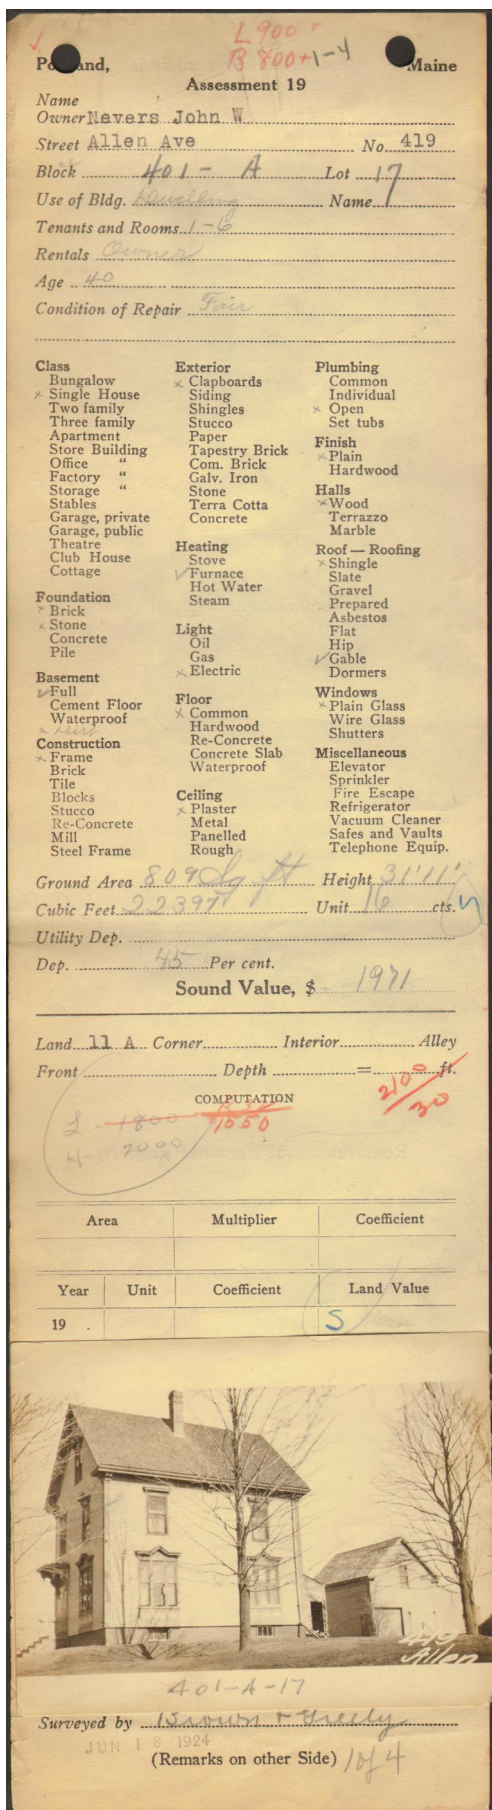 L 900 +
B 800 + 1-4
Portland, Maine
Assessment 19
Name
Owner Nevers John W
Street Allen Ave No. 419
Block 401- A Lot 17
Use of Bldg. Dwelling Name
Tenants and Rooms 1-6
Rentals Owner
Age 40
Condition of Repair Fair
Class
Bungalow
x Single House
Two family
Three family
Apartment
Store Building
Office "
Factory "
Storage "
Stables
Garage, private
Garage, public
Theatre
Club House
Cottage
Foundation
x Brick
x Stone
Concrete
Pile
Basement
✓ Full
Cement Floor
Waterproof
x Dirt
Construction
x Frame
Brick
Tile
Blocks
Stucco
Re-Concrete
Mill
Steel Frame
Exterior
x Clapboards
Siding
Shingles
Stucco
Paper
Tapestry Brick
Com. Brick
Galv. Iron
Stone
Terra Cotta
Concrete
Heating
Stove
✓ Furnace
Hot Water
Steam
Light
Oil
Gas
x Electric
Floor
x Common
Hardwood
Re-Concrete
Concrete Slab
Waterproof
Ceiling
x Plaster
Metal
Panelled
Rough
Plumbing
Common
Individual
x Open
Set tubs
Finish
x Plain
Hardwood
Halls
x Wood
Terrazzo
Marble
Roof — Roofing
x Shingle
Slate
Gravel
Prepared
Asbestos
Flat
Hip
✓ Gable
Dormers
Windows
x Plain Glass
Wire Glass
Shutters
Miscellaneous
Elevator
Sprinkler
Fire Escape
Refrigerator
Vacuum Cleaner
Safes and Vaults
Telephone Equip.
Ground Area 809 Sq ft Height 31'11"
Cubic Feet 22397 Unit 16 cts.
Utility Dep.
Dep. 45 Per cent.
Sound Value, $ 1971
Land 11 A Corner Interior Alley
Front Depth = ft.
COMPUTATION
2100
30
L 1800
1550
H- 2000
Area Multiplier Coefficient
Year Unit Coefficient Land Value
19 . S
419
Allen
401-A-17
Surveyed by Brown + Greely
JUN 18 1924
(Remarks on other Side) 1 of 4